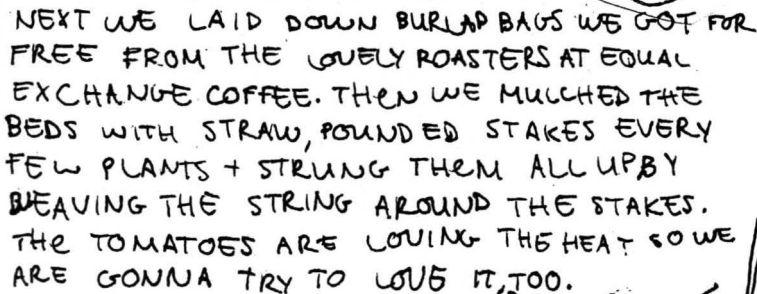 NEXT WE LAID DOWN BURLAP BAGS WE GOT FOR
FREE FROM THE LOVELY ROASTERS AT EQUAL
EXCHANGE COFFEE. THEN WE MULCHED THE
BEDS WITH STRAW, POUNDED STAKES EVERY
FEW PLANTS + STRUNG THEM ALL UP BY
WEAVING THE STRING AROUND THE STAKES.
THE TOMATOES ARE LOVING THE HEAT SO WE
ARE GONNA TRY TO LOVE IT, TOO.